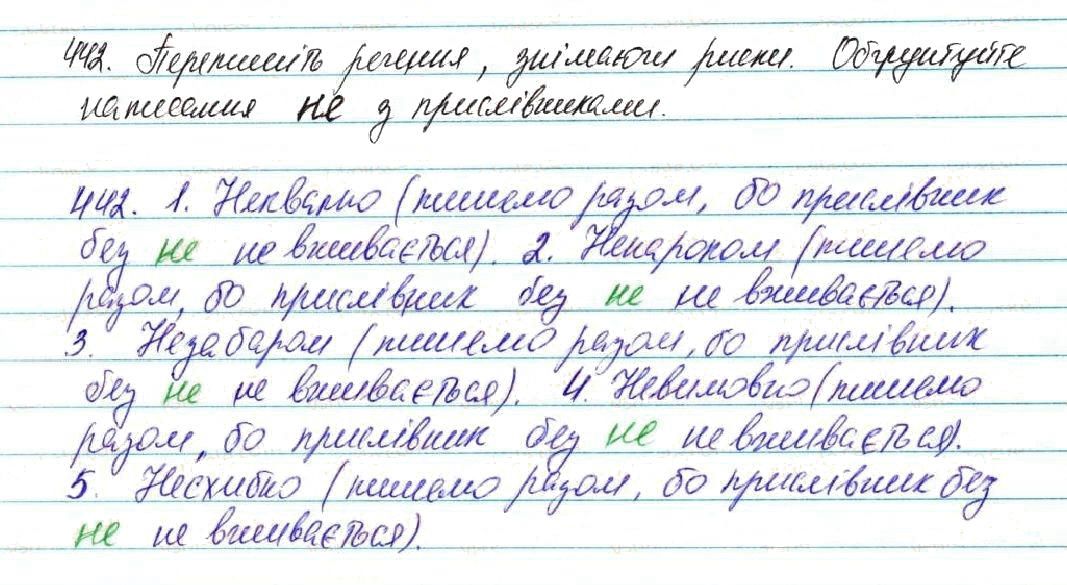 442. Перепишіть речення, знімаючи риски. Обґрунтуйте
написання не з прислівниками.
442. 1. Неквапно (пишемо разом, бо прислівник
без не не вживається). 2. Ненароком (пишемо
разом, бо прислівник без не не вживається).
3. Незабаром (пишемо разом, бо прислівник
без не не вживається). 4. Невимовно (пишемо
разом, бо прислівник без не не вживається).
5. Несхибно (пишемо разом, бо прислівник без
не не вживається).